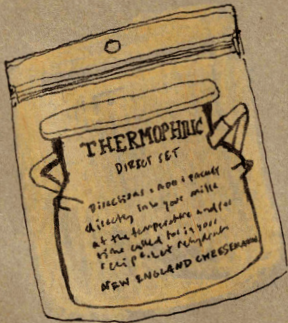 THERMOPHILIC
DIRECT SET
Directions: Add 1 packet
directly into your milk
at the temperature and/or
time called for in your
recipe. Let rehydrate
NEW ENGLAND CHEESEMAKING